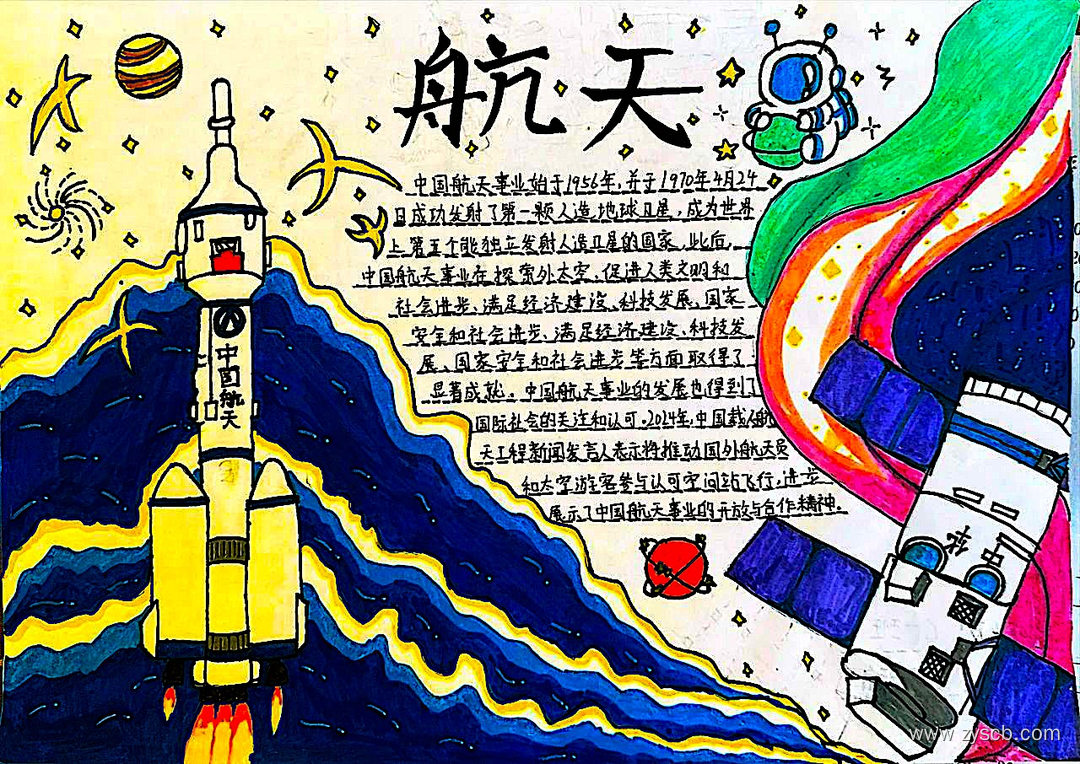 航天
中国航天事业始于1956年,并于1970年4月24
日成功发射了第一颗人造地球卫星,成为世界
上第五个能独立发射人造卫星的国家。此后,
中国航天事业在探索外太空,促进人类文明和
社会进步,满足经济建设、科技发展、国家
安全和社会进步,满足经济建设、科技发
展、国家安全和社会进步等方面取得了
显著成就。中国航天事业的发展也得到了
国际社会的关注和认可。2024年,中国载人航
天工程新闻发言人表示将推动国外航天员
和太空游客参与认可空间站飞行,进步
展示了中国航天事业的开放与合作精神。
中国航天
www.zyscb.com